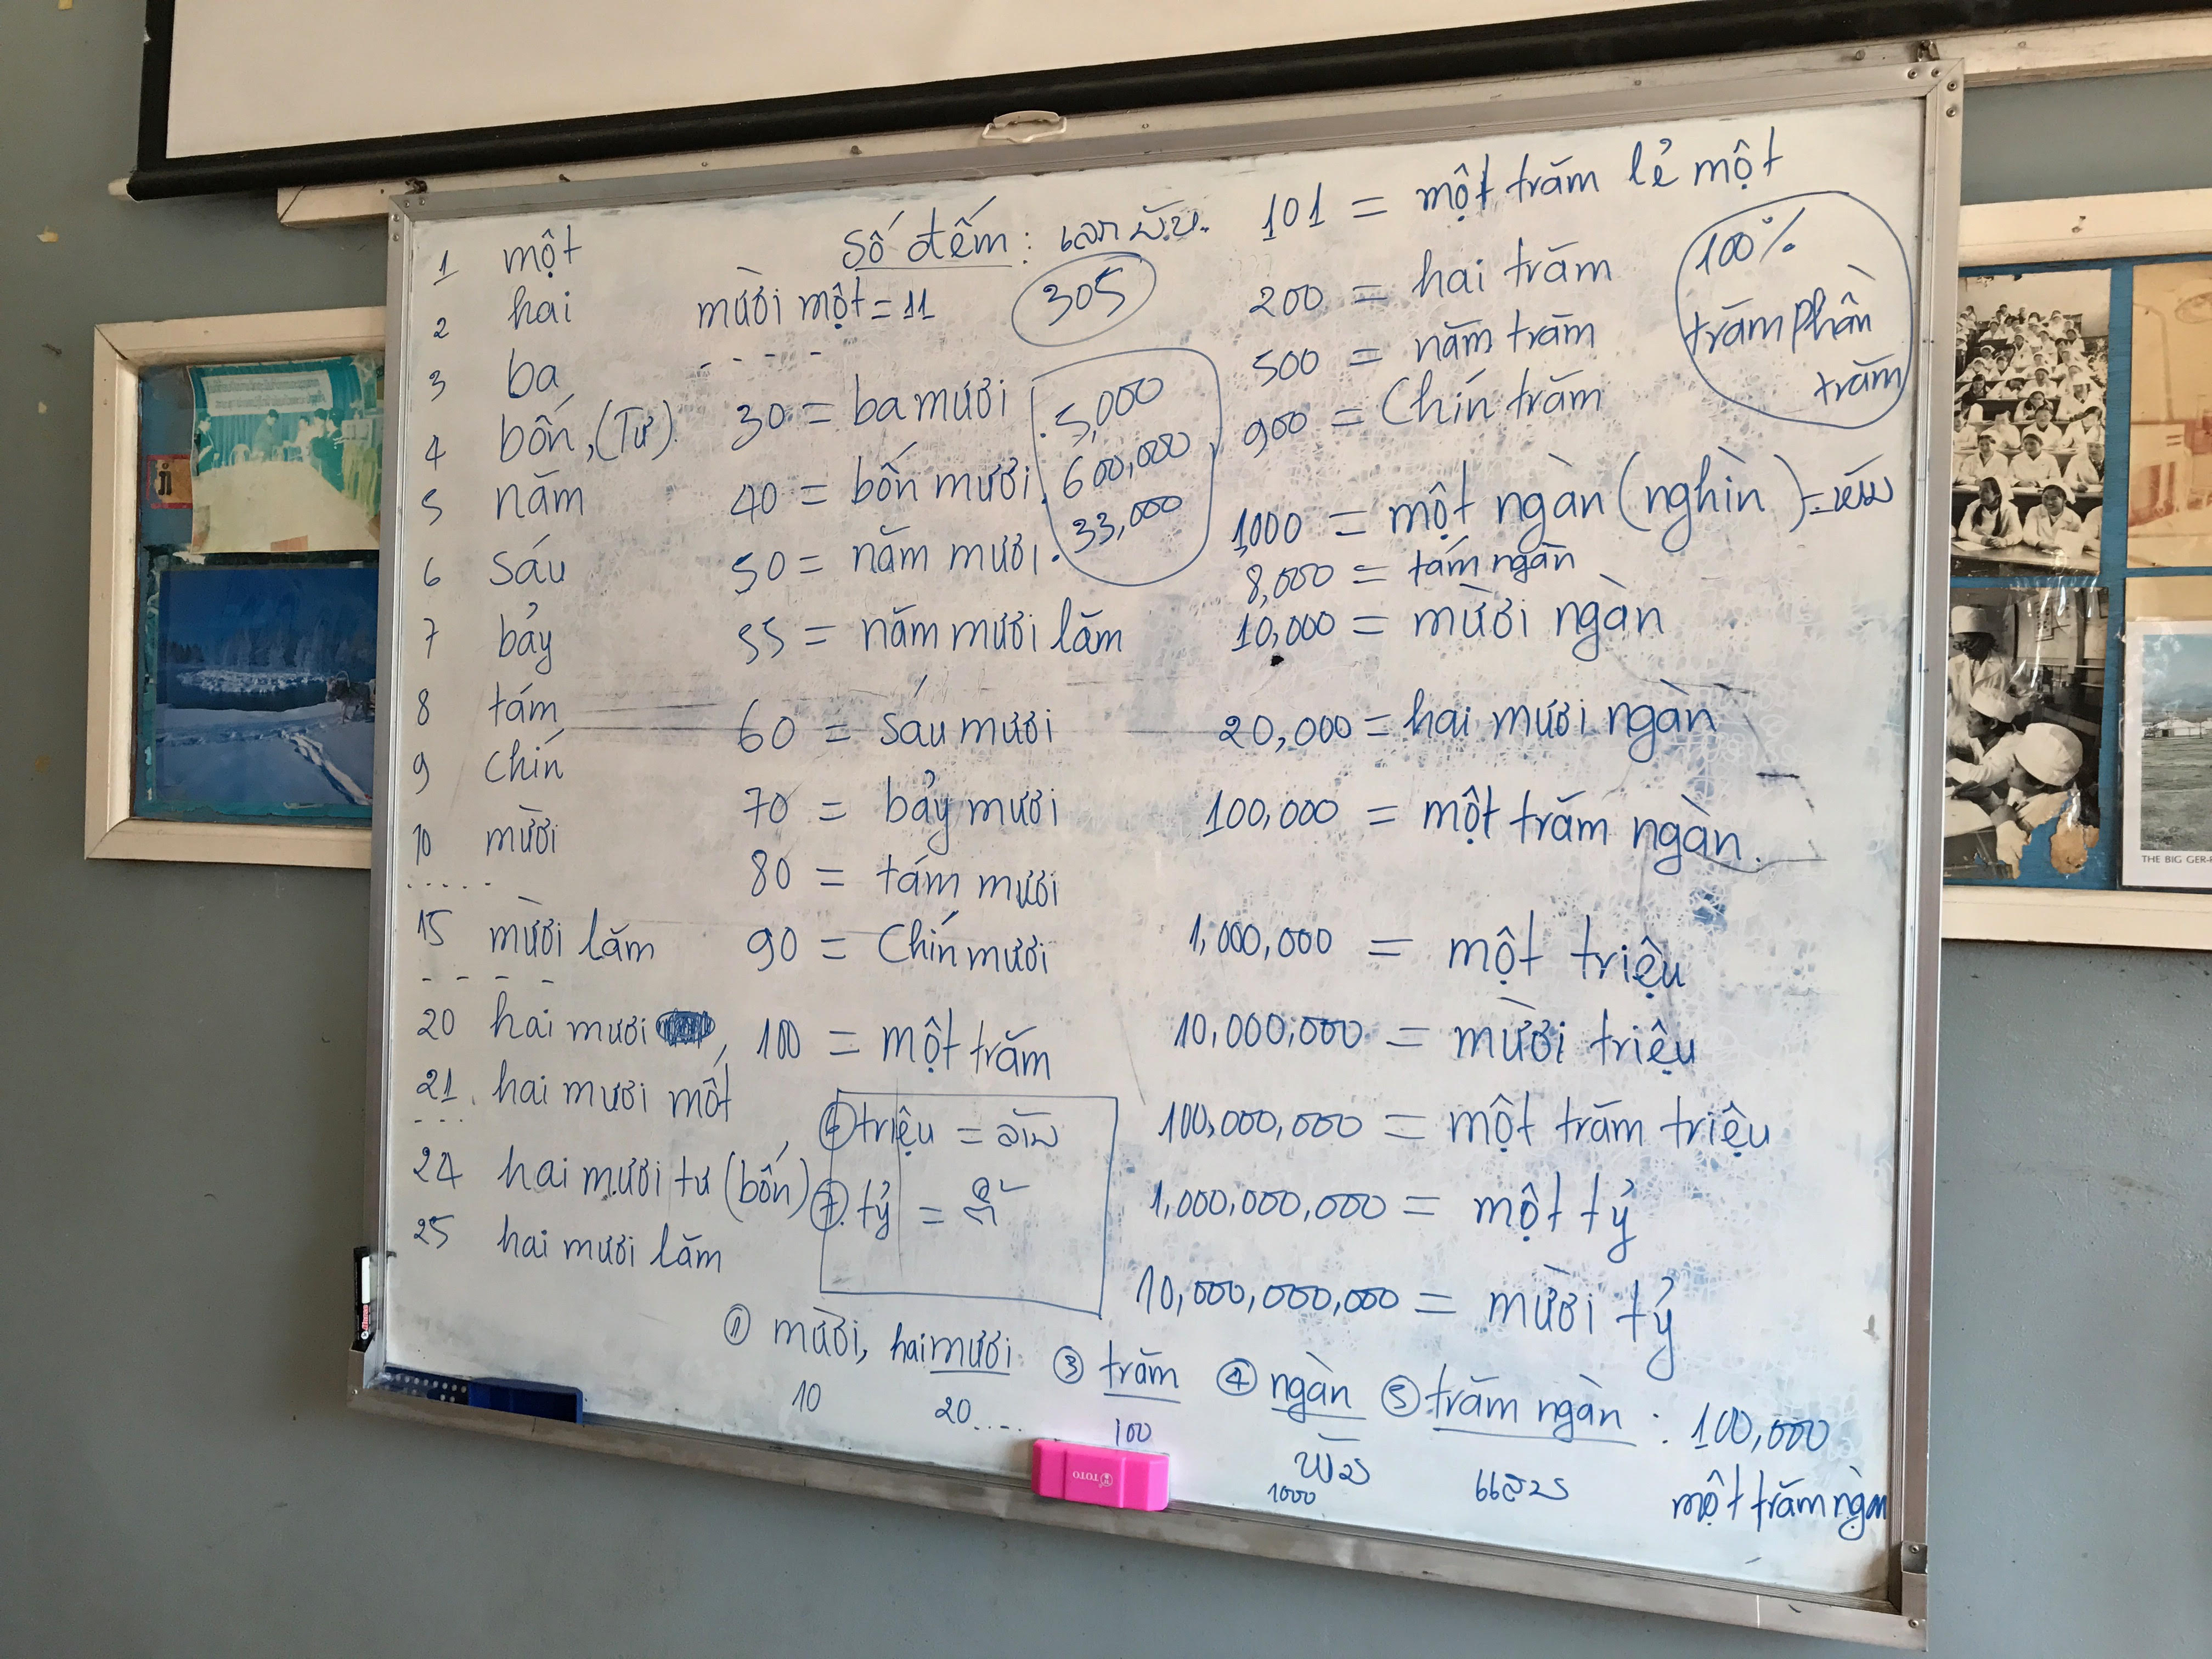 số đếm: ເລກ ນັບ.
1 một
2 hai
3 ba
4 bốn, (Tư).
5 năm
6 sáu
7 bảy
8 tám
9 Chín
10 mười
.....
15 mười lăm
- - - -
20 hai mươi
21. hai mươi mốt
- - -
24 hai mươi tư (bốn)
25 hai mươi lăm
mười một = 11
- - - -
30 = ba mươi
40 = bốn mươi.
50 = năm mươi.
55 = năm mươi lăm
60 = sáu mươi
70 = bảy mươi
80 = tám mươi
90 = Chín mươi
100 = một trăm
305
5,000
600,000
33,000
101 = một trăm lẻ một
200 = hai trăm
500 = năm trăm
900 = Chín trăm
1000 = một ngàn (nghìn) = ພັນ
8,000 = tám ngàn
10,000 = mười ngàn
20,000 = hai mươi ngàn
100,000 = một trăm ngàn.
1,000,000 = một triệu
10,000,000 = mười triệu
100,000,000 = một trăm triệu
1,000,000,000 = một tỷ
10,000,000,000 = mười tỷ
100%
trăm phần
trăm
triệu = ລ້ານ
tỷ = ຕື້
① mười, hai mươi. ③ trăm ④ ngàn ⑤ trăm ngàn : 100,000
10 20.... 100 ພັນ ແສນ một trăm ngàn
1000
TOTO
THE BIG GER-